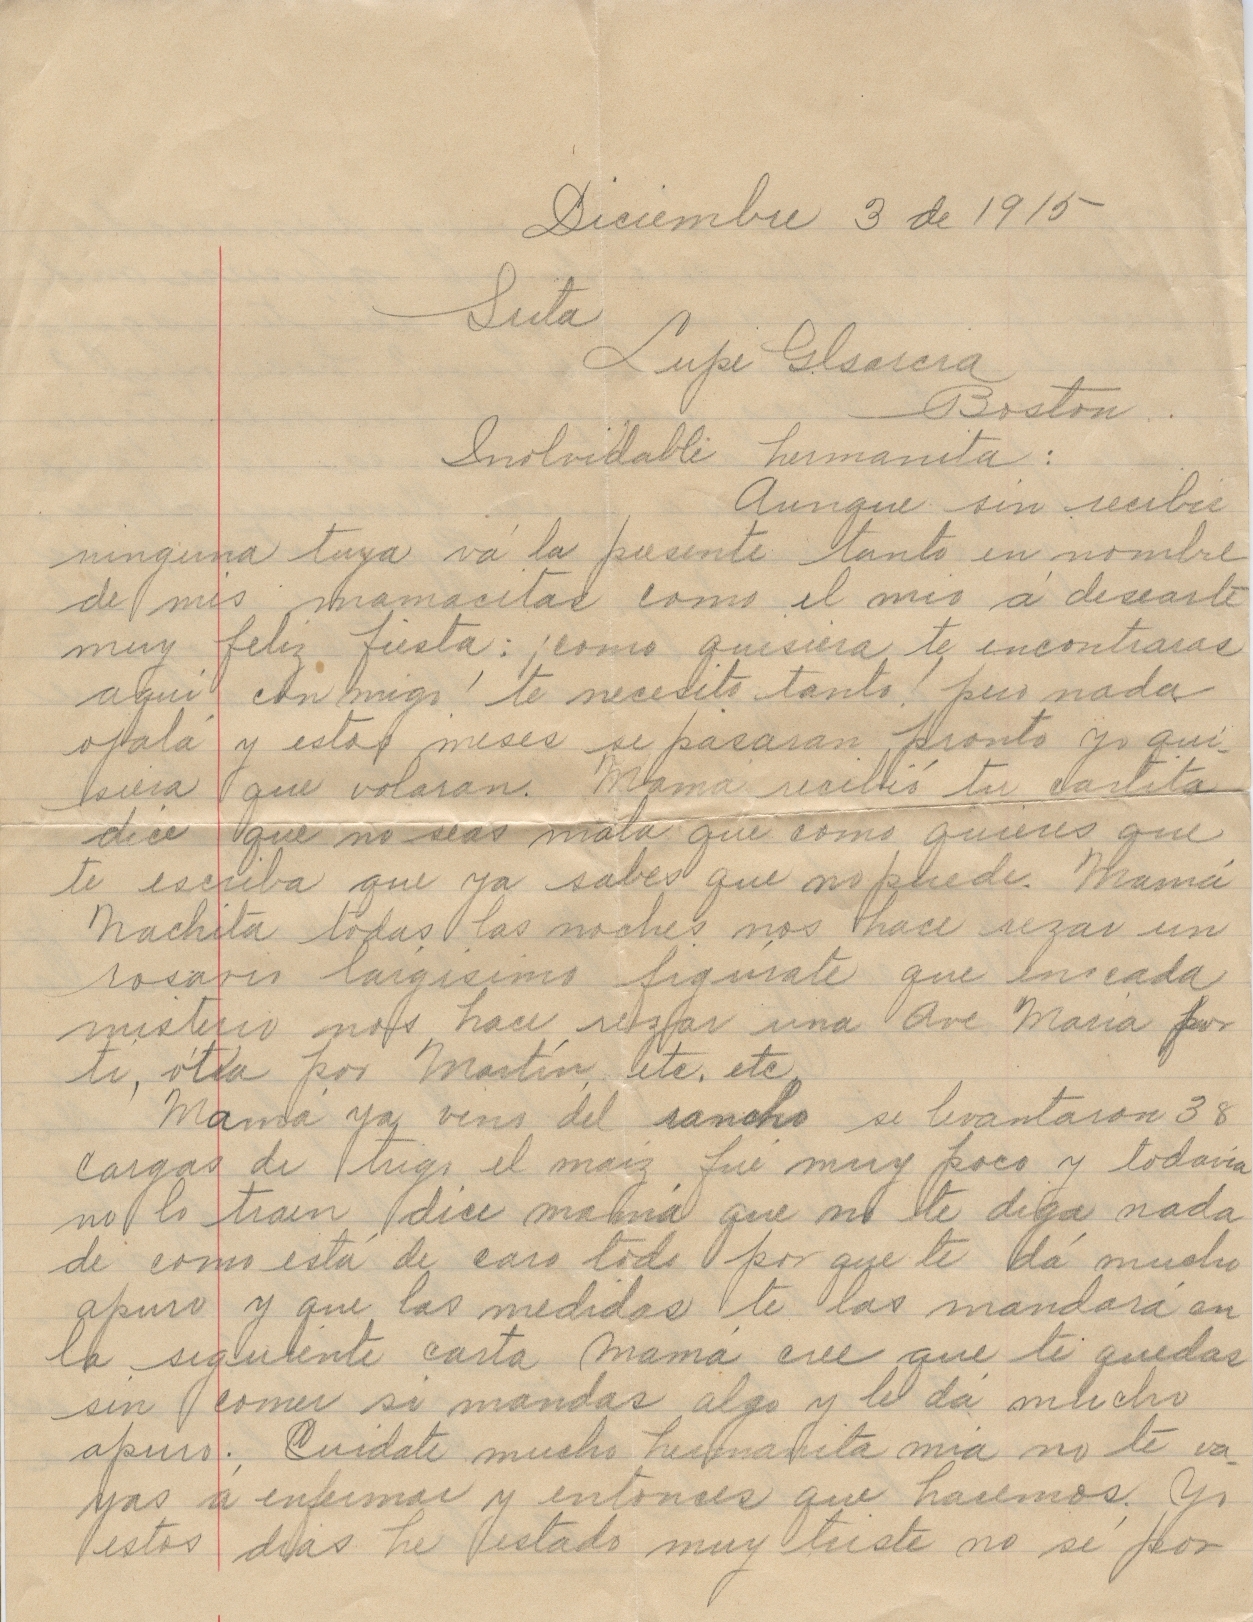 Diciembre 3 de 1915
Srita
Lupe
Boston.
Inolvidable hermanita:
Aunque sin recibir
ninguna tuya vá la presente tanto en nombre
de mis mamacitas como el mio á desearte
muy feliz fiesta: ¡como quisiera te encontraras
aqui con migo! te necesito tanto! pero nada
ojalá y estos meses se pasaran pronto yo qui-
siera que volaran. Mamá recibió tu cartita
dice que no seas mala que como quieres que
te escriba que ya sabes que no puede. Mamá
Nachita todas las noches nos hace rezar un
rosario largisimo figúrate que en cada
misterio nos hace rezar una Ave Maria por
ti, otra por Martín, etc. etc.
Mamá ya vino del rancho se levantaron 38
cargas de trigo el maiz fué muy poco y todavia
no lo traen dice mamá que no te diga nada
de como está de caro todo por que te dá mucho
apuro y que las medidas te las mandará en
la siguiente carta Mamá cree que te quedas
sin comer si mandas algo y le dá mucho
apuro. Cuidate mucho hermanita mia no te va-
yas á enfermar y entonces que hacemos. Yo
estos dias he estado muy triste no sé por